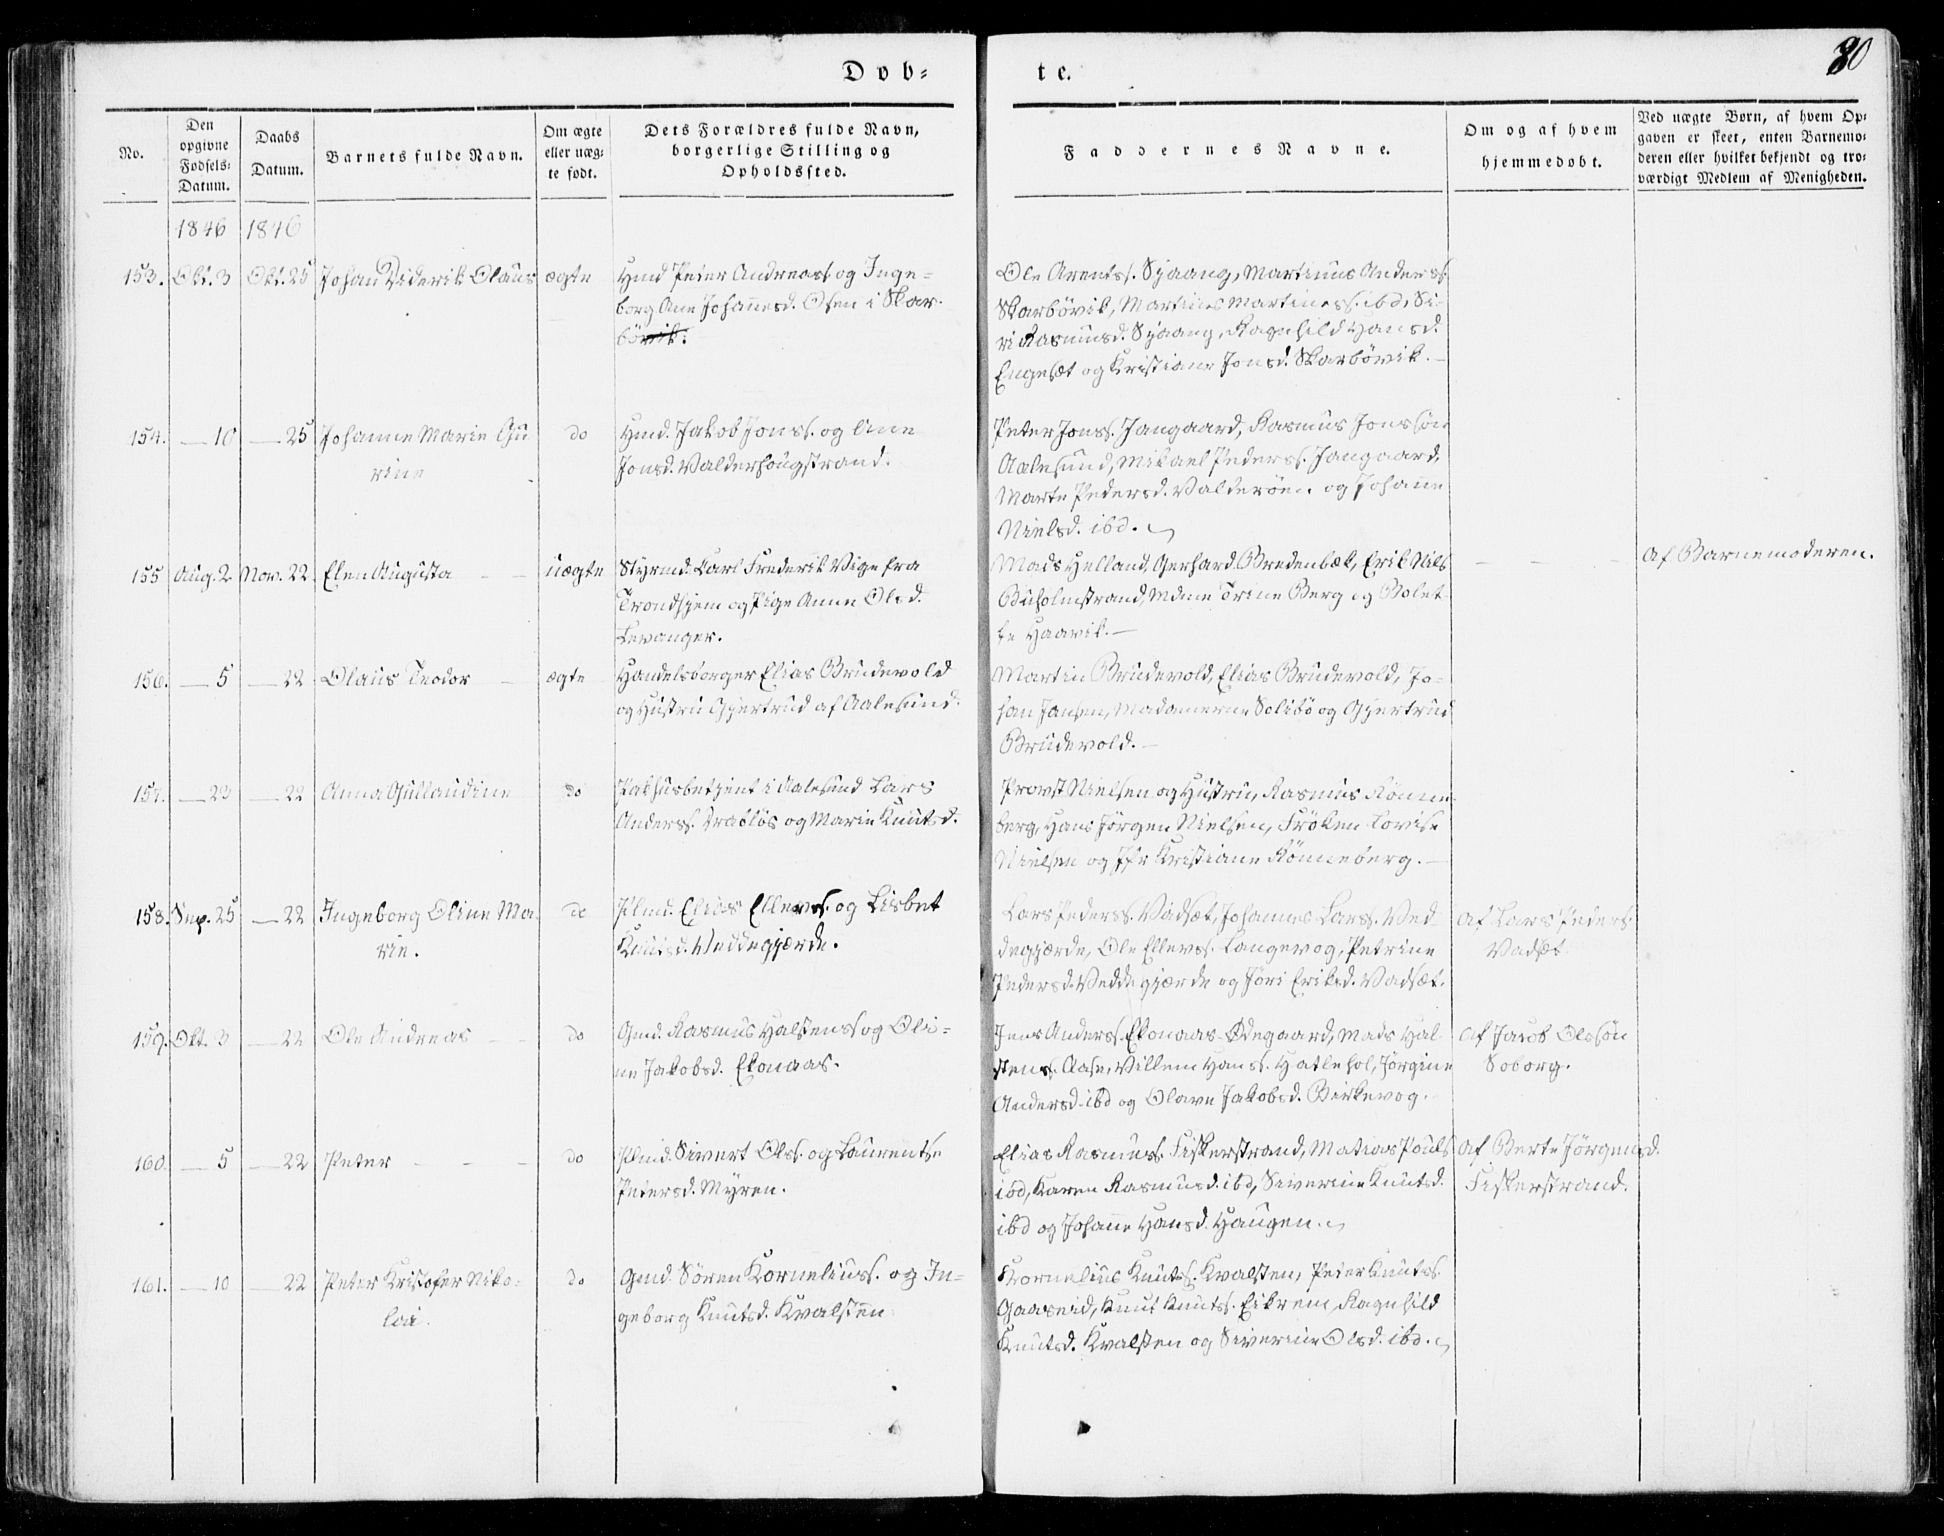 Døb-
te.
80
No.
Den
opgivne
Fødsels-
Datum.
Daabs
Datum.
Barnets fulde Navn.
Om ægte
eller uæg-
te født.
Dets Forældres fulde Navn,
borgerlige Stilling og
Opholdssted.
Faddernes Navne.
Om og af hvem
hjemmedøbt.
Ved uægte Børn, af hvem Op-
gaven er skeet, enten Barnemo-
deren eller hvilket bekjendt og tro-
værdigt Medlem af Menigheden.
1846 1846
153. Okt. 3 Okt. 25 Johan Diderik Olaus ægte
Hmd Peter Andreass. og Inge-
borg Ane Johannesd. Osen i Skar-
bøvik.
Ole Arentss. Syaang, Martinus Anderss.
Skarbøvik, Martines Martiness. ibd, Si-
ri Rasmusd. Syaang, Ragnhild Hansd.
Engeset og Kristiane Jonsd. Skarbøvik.
154. — 10 — 25 Johanne Marie Gu
rine
do
Hmd. Jakob Jonss. og Ane
Jonsd. Valderhougstrand.
Peter Jonss. Jangaard, Rasmus Jonssøn
Aalesund, Mikael Pederss. Jangaard,
Marte Pedersd. Valderøen og Johanne
Nielsd. ibd.
155 Aug. 2 Nov. 22. Elen Augusta — uægte
Styrmd. Carl Frederik Vige fra
Trondhjem og Pige Anne Olsd.
Levanger.
Mads Helland, Gerhard Bredenbæk, Erik Nils
Buholmstrand, Mdme Trine Berg og Bolet-
te Haavik.—
— — —
Af Barnemoderen.
156. — 5 — 22 Olaus Teodor — ægte
Handelsborger Elias Brudevold
og Hustru Gjertrud af Aalesund.
Martin Brudevold, Elias Brudevold, Jo-
han Jansen, Madamerne Solibø og Gjertrud
Brudevold.—
157. — 23 — 22 Anna Gullaudine do
Pakhusbetjent i Aalesund Lars
Anderss. og Marie Knutsd.
Provst Nielsen og Hustru, Rasmus Rønne-
berg, Hans Jørgen Nielsen, Frøken Lovise
Nielsen og Jfr Kristiane Rønneberg.—
158. Sep. 25 — 22 Ingeborg Oline Ma-
rie.
do
Plmd. Elias Ellevs. og Lisbet
Knutsd. Veddegjærde.
Lars Pederss. Vadset, Johannes Larss. Ved-
degjærde, Ole Ellevss. Langevog, Petrine
Pedersd. Veddegjærde og Jøri Eriksd. Vadset.
Af Lars Peders.
Vadset.
159. Okt. 3 — 22 Ole Andreas — do
Gmd. Rasmus Halstenss. og Oli-
ne Jakobsd. Ekonaas.
Jens Anderss. Ekonaas Ødegaard, Mads Hal-
stens. Aase, Villem Hanss. Hatlehol, Jørgine
Andersd. ibd og Olave Jakobsd. Birkevog.
Af Jacob Olssøn
Soborg.
160. — 5 — 22 Peter — — — do
Plmd. Sivert Olss. og Laurentse
Petersd. Myren.
Elias Rasmuss. Fiskerstrand, Matias Pouls
ibd, Karen Rasmusd. ibd, Siverine Knutsd.
ibd og Johanne Hansd. Haugen.
Af Berte Jørgensd.
Fiskerstrand.
161. — 10 — 22 Peter Kristofer Niko-
lai.
do
Gmd. Søren Korneliuss. og In-
geborg Knutsd. Kvalsten.
Kornelius Knutss. Kvalsten, Peder Knutss.
Gaaseid, Knut Knutss. Eikrem, Ragnhild
Knutsd. Kvalsten og Siverine Olsd. ibd.